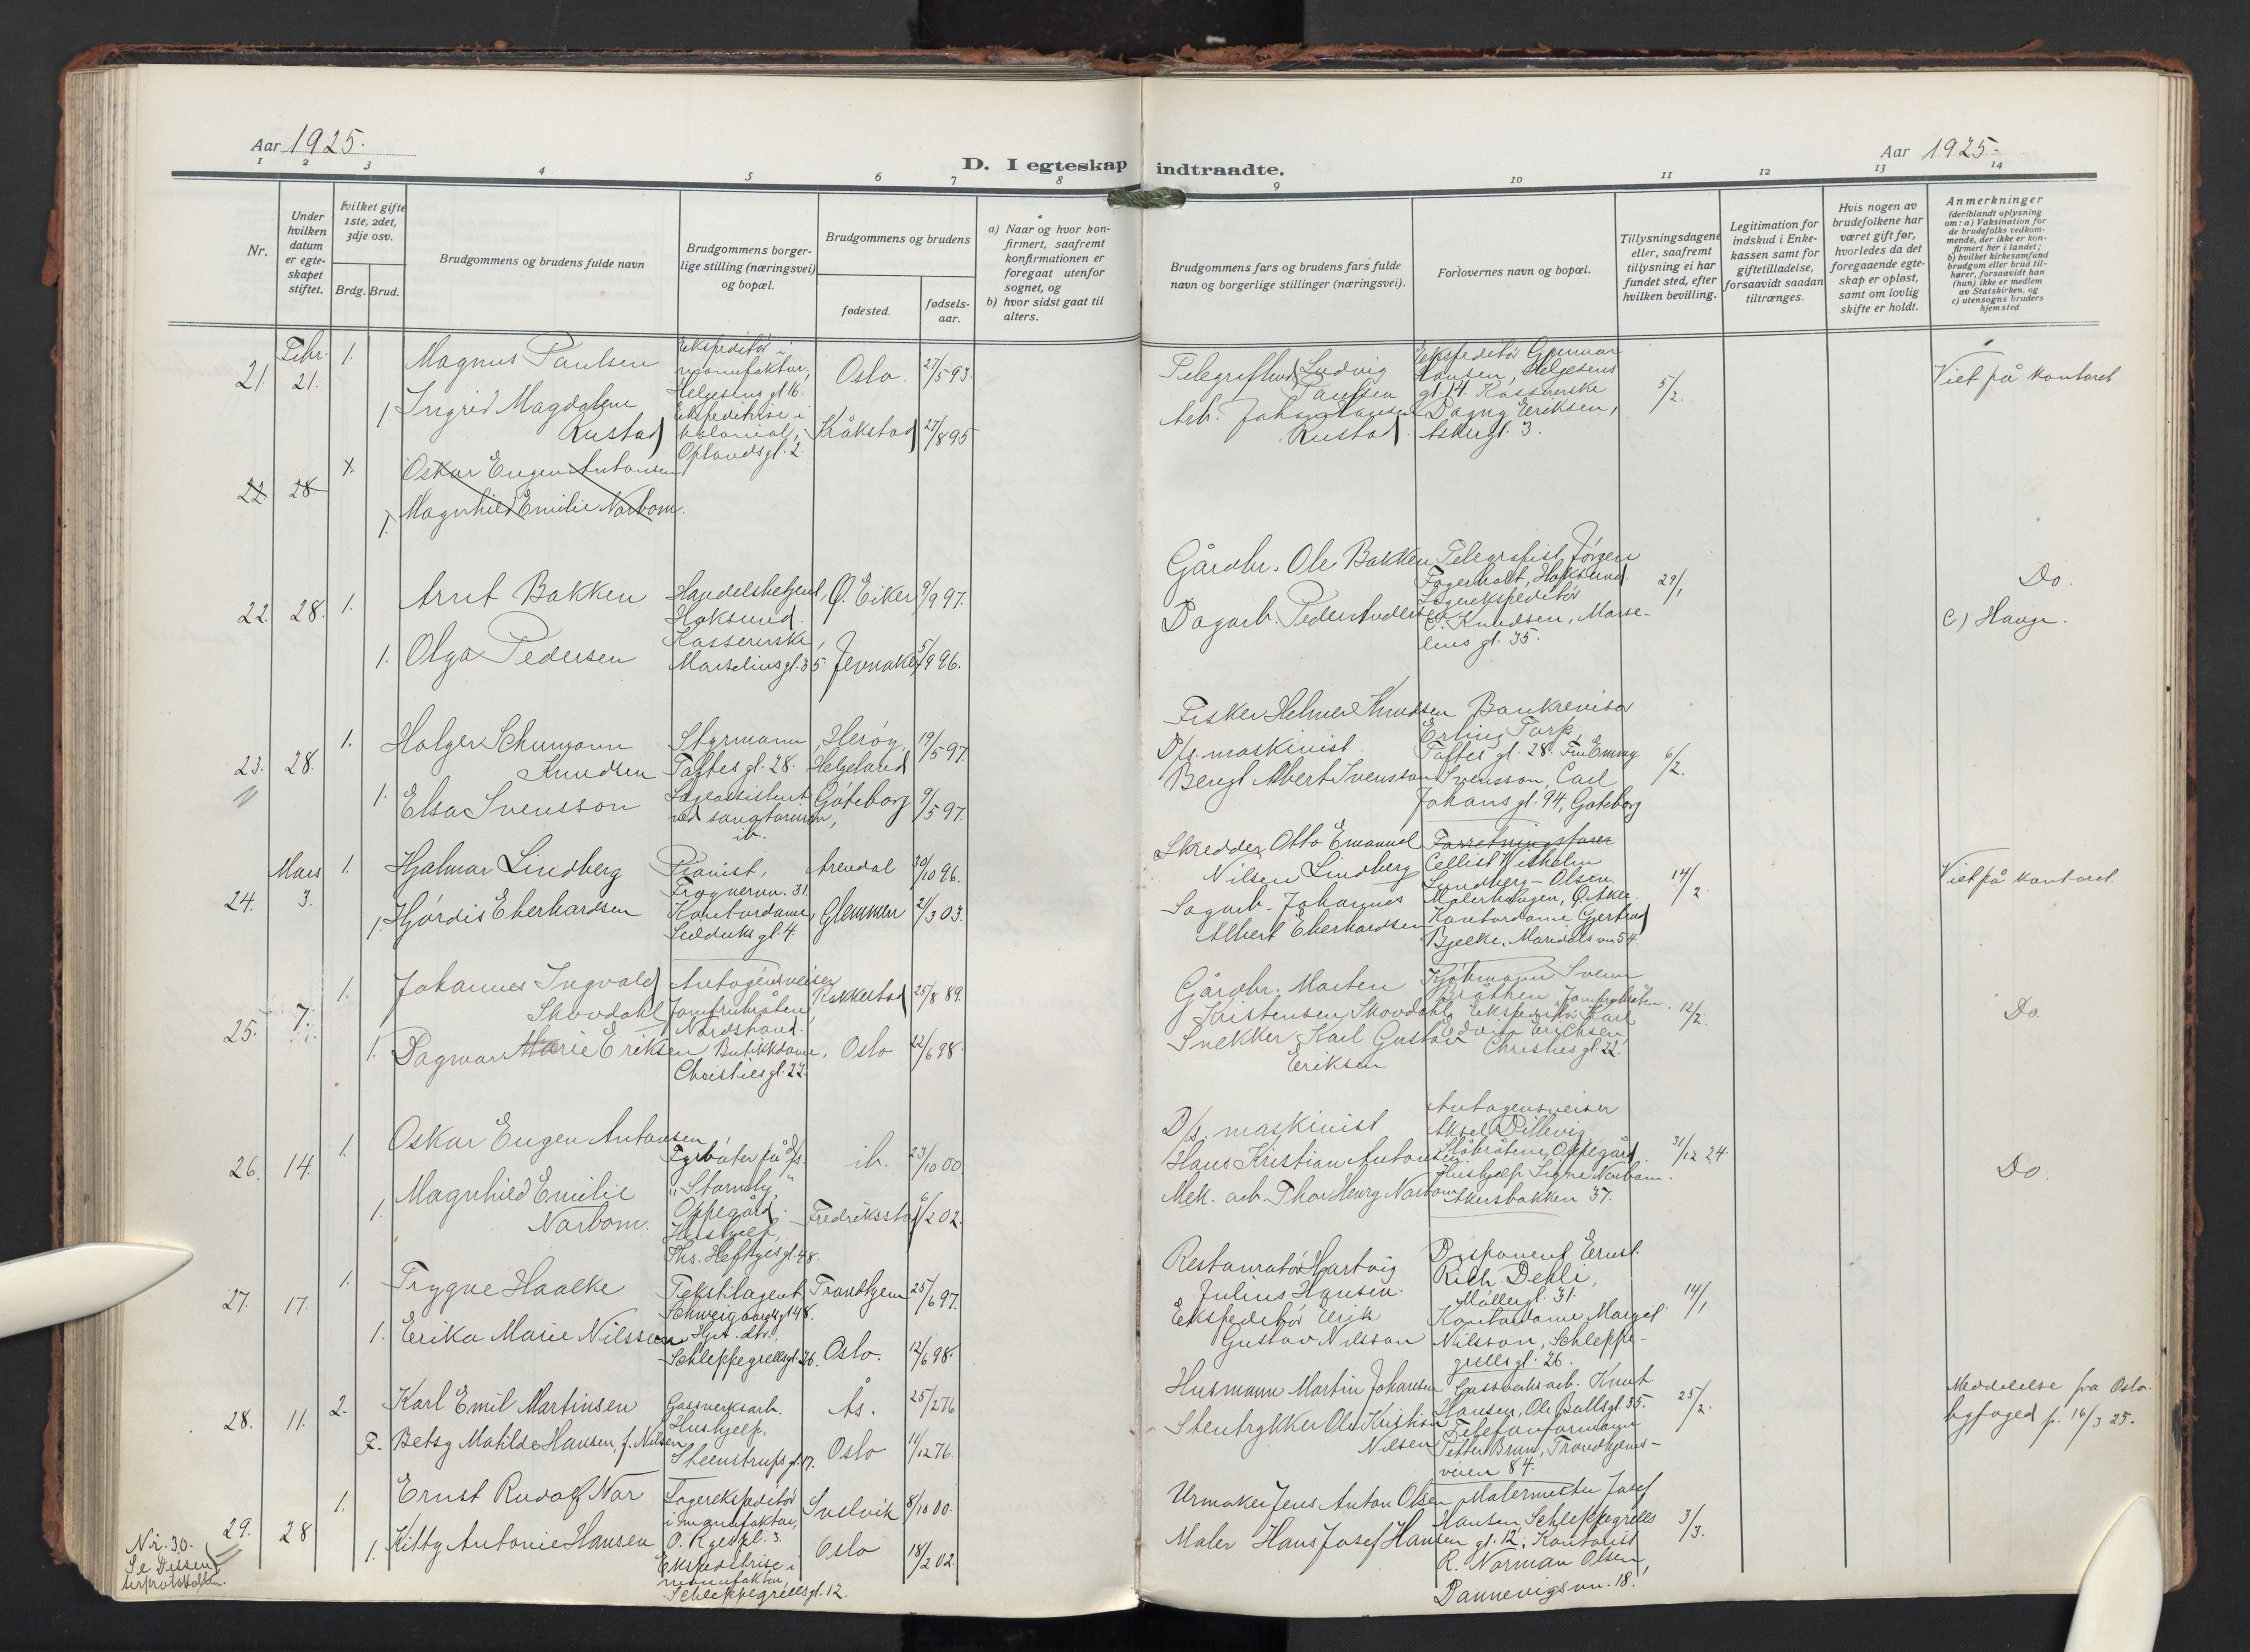 Aar 1925.
D. I egteskap indtraadte.
Aar 1925.
1 2 3 4 5 6 7 8 9 10 11 12 13 14
Nr.
Under hvilken datum er egteskapet stiftet.
hvilket gifte 1ste, 2det, 3dje osv.
Brdg. Brud.
Brudgommens og brudens fulde navn
Brudgommens borgerlige stilling (næringsvei) og bopæl.
Brudgommens og brudens
fødested.
fødselsaar.
a) Naar og hvor konfirmert, saafremt konfirmationen er foregaat utenfor sognet, og
b) hvor sidst gaat til alters.
Brudgommens fars og brudens fars fulde navn og borgerlige stillinger (næringsvei).
Forlovernes navn og bopæl.
Tillysningsdagene eller, saafremt tillysning ei har fundet sted, efter hvilken bevilling.
Legitimation for indskud i Enkekassen samt for giftetilladelse, forsaavidt saadan tiltrænges.
Hvis nogen av brudefolkene har været gift før, hvorledes da det foregaaende egteskap er opløst, samt om lovlig skifte er holdt.
Anmerkninger (deriblandt oplysning om: a) Vaksination for de brudefolks vedkommende, der ikke er konfirmert her i landet; b) hvilket kirkesamfund brudgom eller brud tilhører, forsaavidt han (hun) ikke er medlem av Statskirken, og c) utensogns bruders hjemsted
21. Febr. 21. 1. Magnus Paulsen
Ekspeditør i manufaktur, Helgesens gt 16.
Oslo. 27/5 93.
Ludvig Paulsen
Ekspeditør Gunnar Hansen, Helgesens gt. 14. Kassererske Dagny Eriksen, gt. 3.
5/2.
Viet på kontoret
1. Ingrid Magdalene Rustad
Ekspeditrise i kolonial, Oplandsgt. 2.
Kråkstad 27/8 95
Arb. Johan Rustad.
22 28. 1. Oskar Eugen Antonsen
1. Magnhild Emilie Narbom.
22. 28. 1. Arnt Bakken
Handelsbetjent, Hoksund.
Ø. Eiker 9/9 97.
Gårdbr. Ole Bakken
Telegrafist Jørgen Fagerholt, Hoksund. Lagerekspeditør E. Knudsen, Marselius gt. 35.
29/1
Do.
c) Haug.
1. Olga Pedersen
Kassererske, Marselius gt. 35
Jevnaker 5/9 96.
Dagarb. Peder
23. 28. 1. Holger Schumann Knudsen
Styrmann, Toftes gt. 28.
Herøy, Helgeland 19/5 97.
Fisker Helmer Knudsen
Bankrevisor Erling Torp, Toftes gt. 28. Fru Emmy Svensson, Carl Johans gt. 94, Gøteborg
6/2.
1. Elsa Svensson
ib.
Gøteborg 9/5 97.
D/s. maskinist Bengt Albert Svensson
24. Mars 3. 1. Hjalmar Lindberg
Pianist, Frognervn. 31.
Arendal 30/10 96.
Skredder Otto Emanuel Nilsen Lindberg
Forretningsfører Cellist Wilhelm Lundberg-Olsen. Malerhaugen, Ø. Aker. Kontordame Gertrud Bjelke, Maridalsvn 54.
14/2
Viet på kontoret.
1. Hjørdis Eberhardsen
Kontordame, Seilduks gt. 4.
Glemmen 2/3 03.
Sagarb. Johannes Albert Eberhardsen
25. 7. 1. Johannes Ingvald Skovdahl
Autogensveiser Jomfrubråten, Nordstrand.
Rakkestad 25/8 89.
Gårdbr. Morten Kristensen Skovdahl
Kjøbmann Svenn Bråthen, Jomfrubråten. Ekspeditør Karl Edvin Erichsen, Christies gt. 22.
12/2.
Do.
1. Dagmar Marie Eriksen
Butikkdame, Christies gt. 22.
Oslo 22/6 98.
Snekker Karl Gustav Eriksen
26. 14. 1. Oskar Eugen Antonsen
Fyrbøter på D/s. "Stormly", Oppegård.
ib. 23/10 00
D/s. maskinist Hans Kristian Antonsen
Autogensveiser Aksel Dillevig, Oppegård. Hushjelp Signe Narbom. Akersbakken 37.
31/12 24.
Do.
1. Magnhild Emilie Narbom.
Hushjelp, Ths. Heftyes gt. 48.
Fredriksstad /2 02.
Mek. arb. Thor Henry Narbom
27. 17. 1. Trygve Haalke
Tekstilagent, Schweigaards gt 48.
Trondhjem 25/6 97.
Restauratør Hartvig Julius Hansen.
Disponent Ernst Rich. Dehli, Møllergt. 31. Kontordame Margit Nilsson, Schleppegrells gt. 26.
14/1
1. Erika Marie Nilsson
Hjt. dtr., Schleppegrellsgt. 26.
Oslo. 12/6 98.
Ekspeditør Erik Gustav Nilsson
28. 11. 2. Karl Emil Martinsen
Gassverksarb.
Ås. 25/2 76
Husmann Martin Johansen
Gassverksarb. Knut Hansen, Ole Bulls gt 35. Telefonformann Petter Brun, Trondhjemsveien 84.
25/2.
Meddelelse fra Oslo byfoged p. 16/3 25.
2. Betsy Matilde Hansen, f. Nilsen
Hushjelp, Steenstrups gt. 17.
Oslo 11/12 76.
Stentrykker Ole Kristian Nilsen
29. 28. 1. Ernst Rudolf Nor
Lagerekspeditør i manufaktur, O. Ryes pl. 3.
Svelvik 8/10 00.
Urmaker Jens Anton Olsen
Malermester Josef Hansen Schleppegrells gt. 12, Kontorist R. Norman Olsen, Dannevigsvn. 18.
3/3.
1. Kitty Antonie Hansen
Ekspeditrise i manufaktur, Schleppegrellsgt. 12.
Oslo 18/2 02.
Maler Hans Josef Hansen
Nr. 30. Se Dissenterprotokollen.